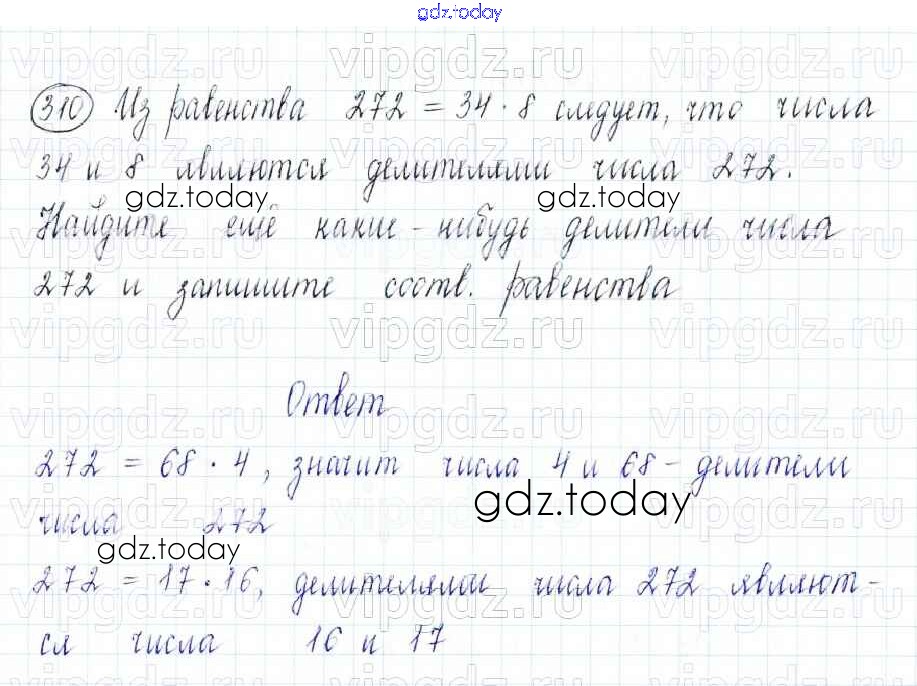 gdz.today
vipgdz.ru vipgdz.ru vipgdz.ru
310 Из равенства 272 = 34 · 8 следует, что числа
vipgdz.ru vipgdz.ru vipgdz.ru
34 и 8 являются делителями числа 272.
gdz.today gdz.today
Найдите ещё какие-нибудь делители числа
272 и запишите соотв. равенства
vipgdz.ru vipgdz.ru vipgdz.ru
Ответ
vipgdz.ru vipgdz.ru vipgdz.ru
272 = 68 · 4, значит числа 4 и 68 - делители
gdz.today
числа 272
gdz.today
272 = 17 · 16, делителями числа 272 являют-
vipgdz.ru vipgdz.ru vipgdz.ru
ся числа 16 и 17